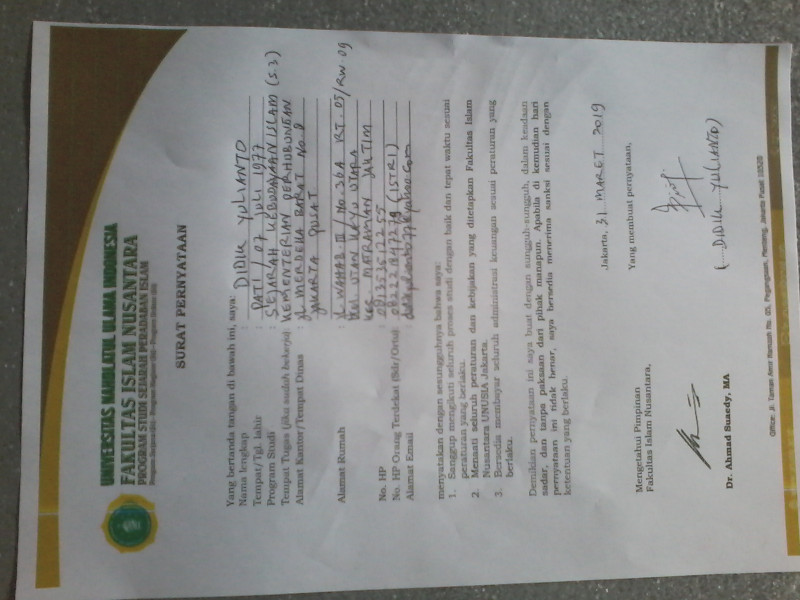 UNIVERSITAS NAHDLATUL ULAMA INDONESIA
FAKULTAS ISLAM NUSANTARA
PROGRAM STUDI SEJARAH PERADABAN ISLAM
SURAT PERNYATAAN
Yang bertanda tangan di bawah ini, saya:
Nama lengkap : DIDIK YULIANTO
Tempat/Tgl. lahir : PATI / 07 JULI 1977
Program Studi : SEJARAH KEBUDAYAAN ISLAM (S.3)
Tempat Tugas (jika sudah bekerja) : KEMENTERIAN PERHUBUNGAN
Alamat Kantor/Tempat Dinas : JL MERDEKA BARAT NO. 8
JAKARTA PUSAT
Alamat Rumah : JL WAHAB III / No. 30A RT. 05/RW 09
KEL UTAN KAYU UTARA
KEC MATRAMAN JAKTIM
No. HP :
No. HP Orang Terdekat (Sdr/Ortu) : (ISTRI)
Alamat Email :
menyatakan dengan sesungguhnya bahwa saya:
1. Sanggup mengikuti seluruh proses studi dengan baik dan tepat waktu sesuai
peraturan yang berlaku.
2. Menaati seluruh peraturan dan kebijakan yang ditetapkan Fakultas Islam
Nusantara UNUSIA Jakarta.
3. Bersedia membayar seluruh administrasi keuangan sesuai peraturan yang
berlaku.
Demikian pernyataan ini saya buat dengan sungguh-sungguh, dalam keadaan
sadar, dan tanpa paksaan dari pihak manapun. Apabila di kemudian hari
pernyataan ini tidak benar, saya bersedia menerima sanksi sesuai dengan
ketentuan yang berlaku.
Jakarta, 31 MARET 2019
Mengetahui Pimpinan
Fakultas Islam Nusantara,
Yang membuat pernyataan,
Dr. Ahmad Suaedy, MA
(DIDIK YULIANTO)
Office: Jl. Taman Amir Hamzah No. 05, Pegangsaan, Menteng, Jakarta Pusat 10320